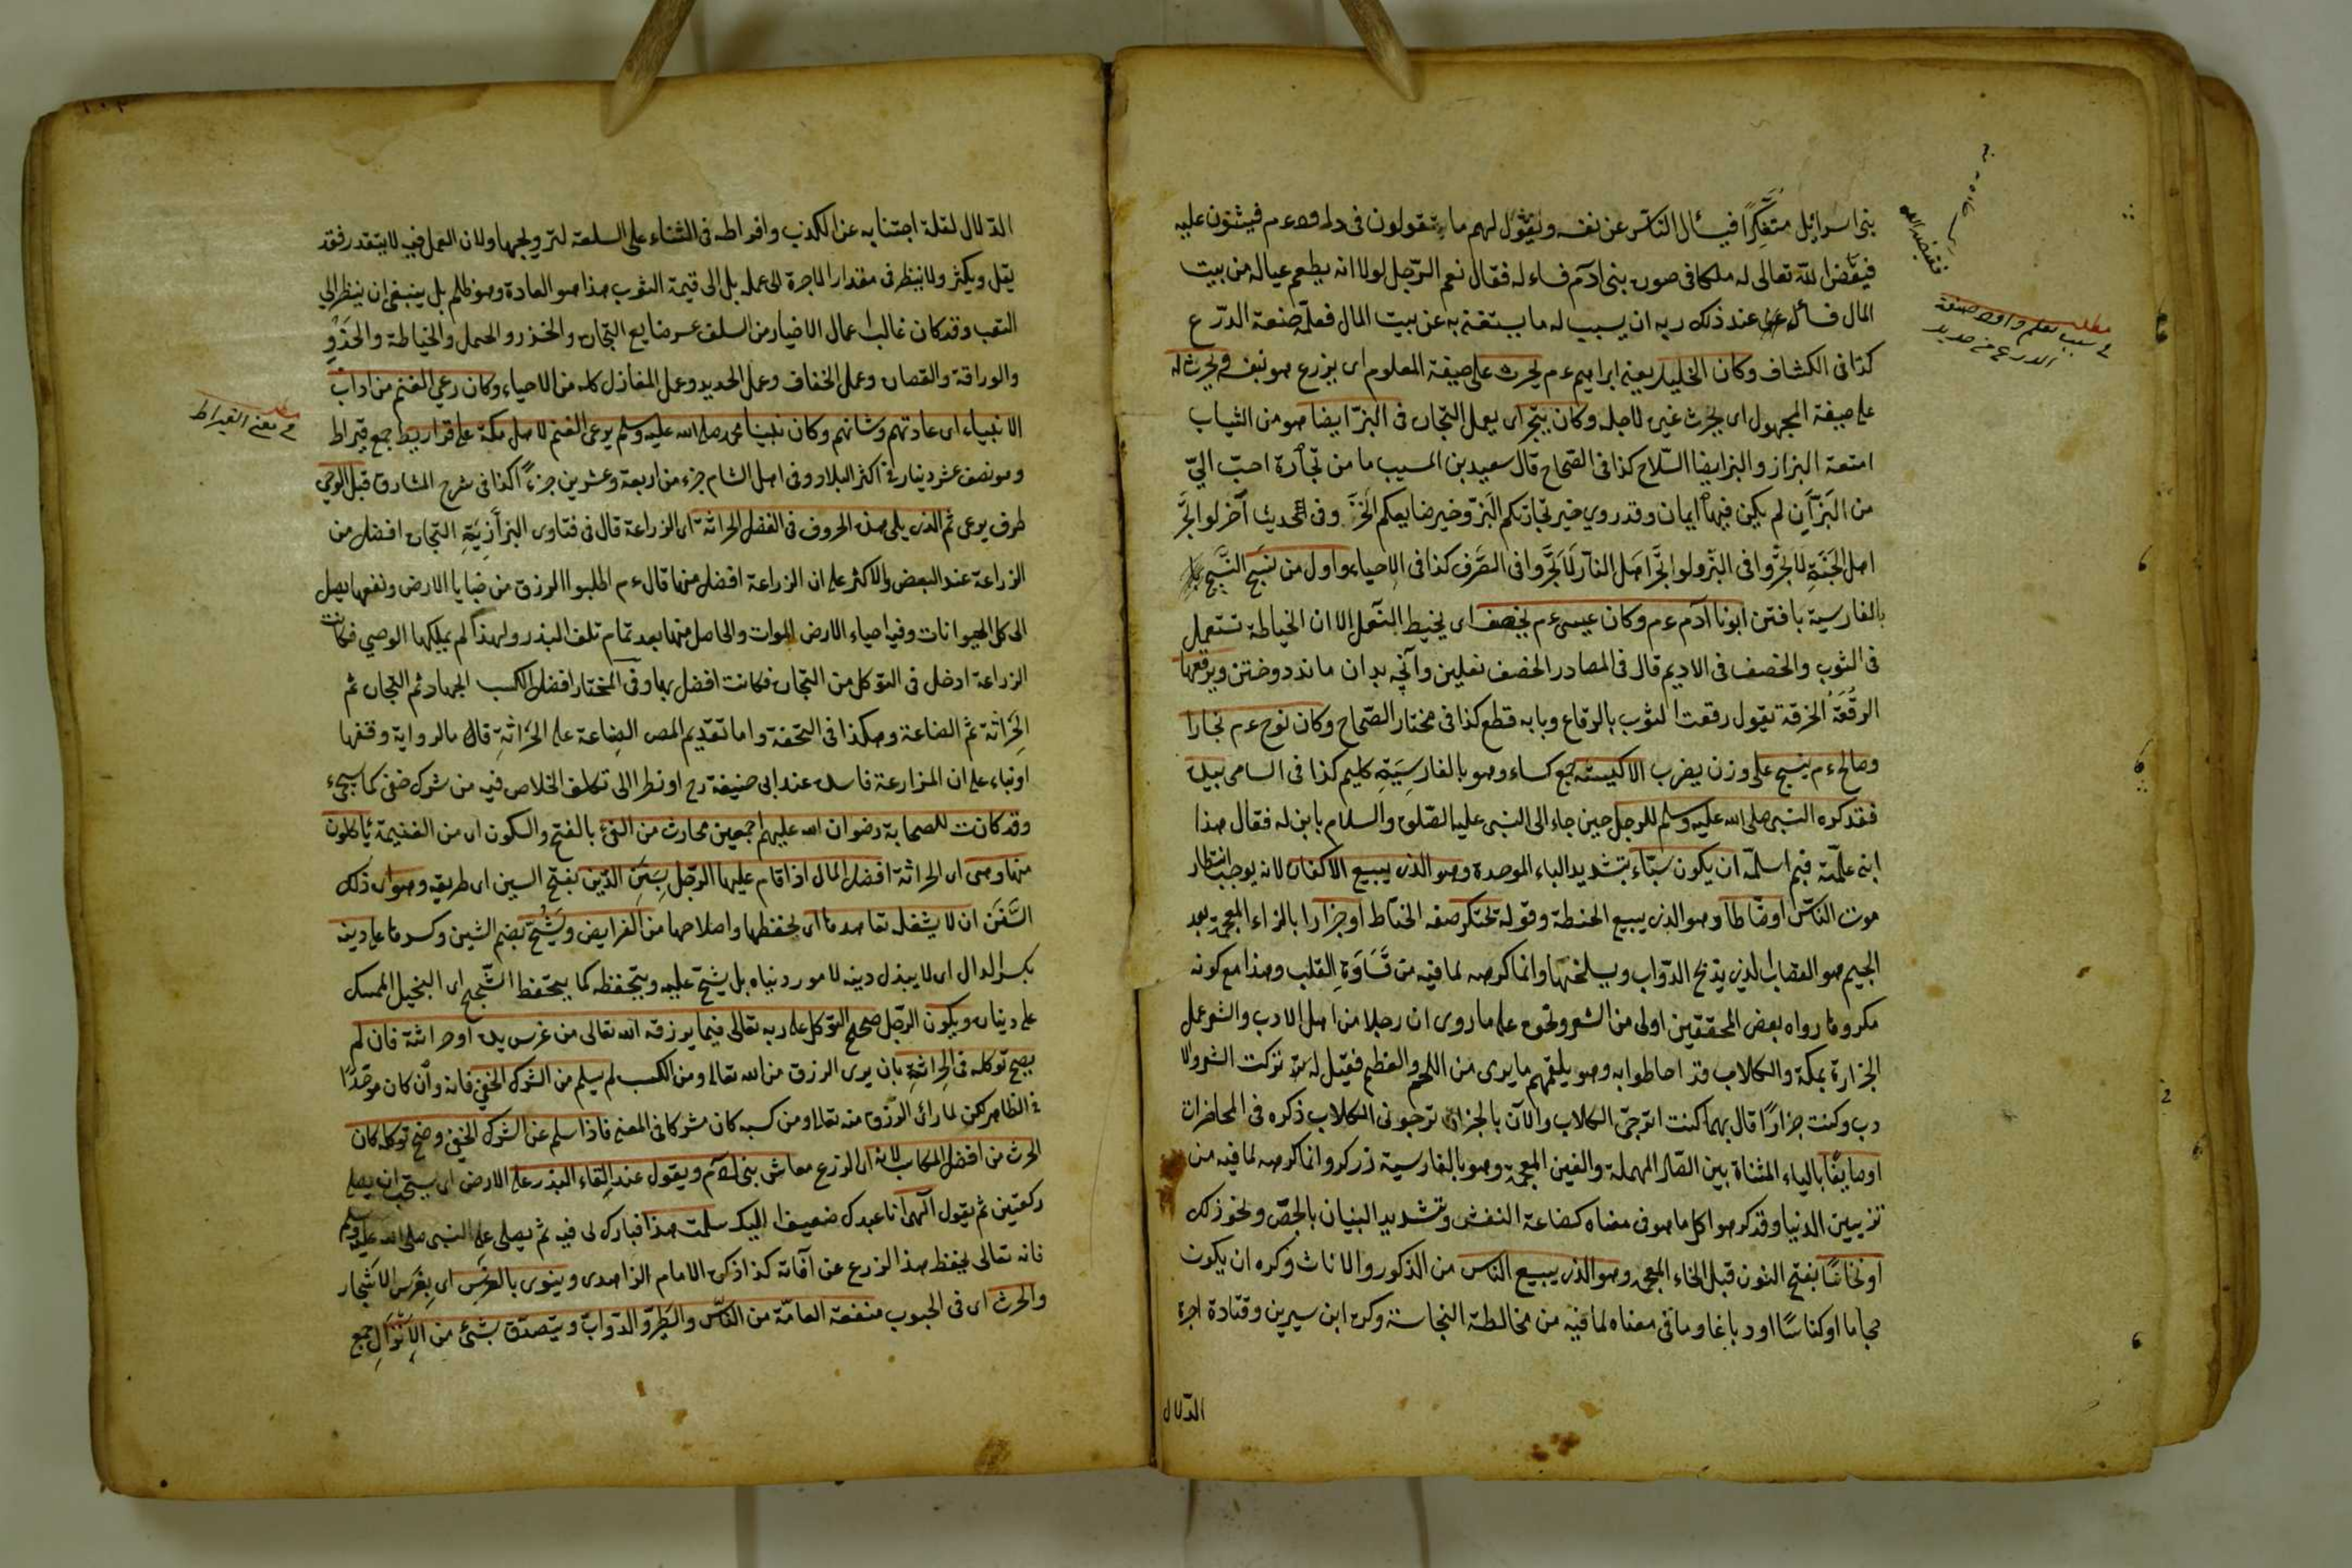 بنى اسرائيل متنكرا فيسأل الناس عن نفسه ويقول لهم ما تقولون فى داود ع م فيثنون عليه
فيقض الله تعالى له ملكا فى صورة بنى ادم فساءله فقال نعم الرجل لولا انه يطعم عياله من بيت
المال فسأل عند ذلك ربه ان يسبب له ما يستغنى به عن بيت المال فعلمه صنعة الدرع
كذا فى الكشاف وكان الخليل يعنى ابراهيم ع م يحرث على صيغة المعلوم اى يزرع هو بنفسه ويحرث له
على صيغة المجهول اى يحرث غيره لاجله وكان يتجر اى يعمل التجارة فى البز ايضا هو من الثياب
امتعة البزاز والبز ايضا السلاح كذا فى الصحاح قال سعيد بن المسيب ما من تجارة احب الىّ
من البزّ ان لم يكن فيها ايمان وقد روي خير تجارتكم البز وخير ضايعكم الخرز وفى الحديث آخر لو اتجر
اهل الجنة لاتجروا فى البز ولو اتجر اهل النار لاتجروا فى الصرف كذا فى الاحياء واول من نسج النسيج
بالفارسية بافتن ابونا آدم ع م وكان عيسى ع م يخصف اى يخيط النعل الا ان الخياطة تستعمل
فى الثوب والخصف فى الاديم قال فى المصادر الخصف نعلين وآنچه بدان ماند دوختن ويرقعها
الرقعة الخرقة تقول رقعت الثوب بالرقاع وبابه قطع كذا فى مختار الصحاح وكان نوح ع م نجارا
وصالح ع م ينسج على وزن يضرب الاكيسة جمع كساء وهو بالفارسية كليم كذا فى السامى بيده
فقد كره النبى صلى الله عليه وسلم للرجل حين جاء الى النبى عليه الصلوة والسلام بابن له فقال هذا
ابنى علمته فبم اسلمه ان يكون سبّاء بتشديد الباء الموحدة وهو الذى يبيع الاكفان لانه يوجب انتظار
موت الناس او حنّاطا وهو الذى يبيع الحنطة وقوله تحتكر صفة الحناط او جزارا بالزاء المعجمة بعد
الجيم هو القصاب الذى يذبح الدواب ويسلخها وانما كرهه لما فيه من قساوة القلب وهذا مع كونه
مكروها رواه بعض المحققين اولى من الشعر ونحوه على ما روى ان رجلا من اهل الادب والشعر عمل
الجزارة بمكة والكلاب قد احاطوا به وهو يلقمهم ما يرى من اللحم والعظم فقيل له تركت الشعر والا
دب وكنت جزارا قال بهما كنت اترجى الكلاب والآن بالجزارة ترجونى الكلاب ذكره فى المحاضرات
او صايغا بالياء المثناة بين الصاد المهملة والغين المعجمة وهو بالفارسية زركر وانما كرهه لما فيه من
تزيين الدنيا وقد كرهوا كل ما هو فى معناه كصناعة النقش وتشديد البنيان بالجص ونحو ذلك
او نخاسا بفتح النون قبل الخاء المعجمة وهو الذى يبيع الناس من الذكور والاناث وكره ان يكون
حجاما او كناسا او دباغا وما فى معناه لما فيه من مخالطة النجاسة وكره ابن سيرين وقتادة اجرة
الدلال
مطلب
فى سبب تعلم داود صنعة
الدرع من حديد
فقيضه الله
الدلال لقلة اجتنابه عن الكذب وافراطه فى الثناء على السلعة لترويجها ولان العمل فيه لا يتقدر فقد
يقل ويكثر ولا ينظر فى مقدار الاجرة الى عمله بل الى قيمة الثوب هذا هو العادة وهو ظلم بل ينبغى ان ينظر الى
التعب وقد كان غالب اعمال الاخيار من السلف عشر ضايع التجارة والخرز والحمل والخياطة والحذو
والوراقة والقصارة وعمل الخفاف وعمل الحديد وعمل المغازل كله من الاحياء وكان رعي الغنم من اداب
الانبياء اى عادتهم وشانهم وكان نبينا محمد صلى الله عليه وسلم يرعى الغنم لاهل مكة على قراريط جمع قيراط
وهو نصف عشر دينار فى اكثر البلاد وفى اهل الشام جزء من اربعة وعشرين جزءً كذا فى شرح المشارق قبل الوحي
ظرف يرعى ثم الذى يلى هذه الحروف فى الفضل الحراثة اى الزراعة قال فى فتاوى البزازية التجارة افضل من
الزراعة عند البعض والاكثر على ان الزراعة افضل منها قال ع م اطلبوا الرزق من خبايا الارض ونفعها يصل
الى كل الحيوانات وفيه احياء الارض الموات والحاصل منها بعد تمام تلف البذر ولهذا لم يملكها الوصي فكانت
الزراعة ادخل فى التوكل من التجارة فكانت افضل بها وفى المختار افضل الكسب الجهاد ثم التجارة ثم
الحراثة ثم الصناعة وهكذا فى التحفة واما تقديم المص الصناعة على الحراثة قال بالرواية وقفها
او بناء على ان المزارعة فاسدة عند ابى حنيفة رح او نظرا الى تكلف الخلاص فيه من شرك خفى كما سيجيء
وقد كانت للصحابة رضوان الله عليهم اجمعين محارث من الفئ بالفتح والسكون اى من الغنيمة يأكلون
منها وهى اى الحراثة افضل المال اذا قام عليها الرجل بسنن الدّين بفتح السين اى طريقه وهو اى ذلك
السنن ان لا يشغله تعاهدها اى تحفظها واصلاحها من الفرايض ويشح بضم الشين وكسرها على دينه
بكسر الدال اى لا يبذل دينه لامور دنياه بل يشح عليه ويتحفظه كما يتحفظ الشحيح اى البخيل الممسك
على ديناره ويكون الرجل صحيح التوكل على ربه تعالى فيما يرزقه الله تعالى من غرس يده او حراثته فان لم
يصح توكله فى الحراثة بان يرى الرزق من الله تعالى ومن الكسب لم يسلم من الشرك الخفي فانه وان كان موحدًا
فى الظاهر لكن لما رأى الرزق منه تعالى ومن كسبه كان مشركا فى المعنى فاذا سلم عن الشرك الخفي وصح توكله كان
الحرث من افضل المكاسب لانه اى الزرع معاش بنى آدم ويقول عند القاء البذر على الارض اى يستحب ان يصلى
ركعتين ثم يقول آلهى انا عبدك ضعيف اليك سلمت هذا فبارك لى فيه ثم يصلى على النبى صلى الله عليه وسلم
فانه تعالى يحفظ هذا الزرع عن آفاته كذا ذكره الامام الزاهدى وينوى بالغرس اى بغرس الاشجار
والحرث اى فى الحبوب منفعة العامّة من الناس والطير والدوابّ ويتصدق بشئ من الانزال جمع
مطلب
فى معنى القيراط
١٠٢